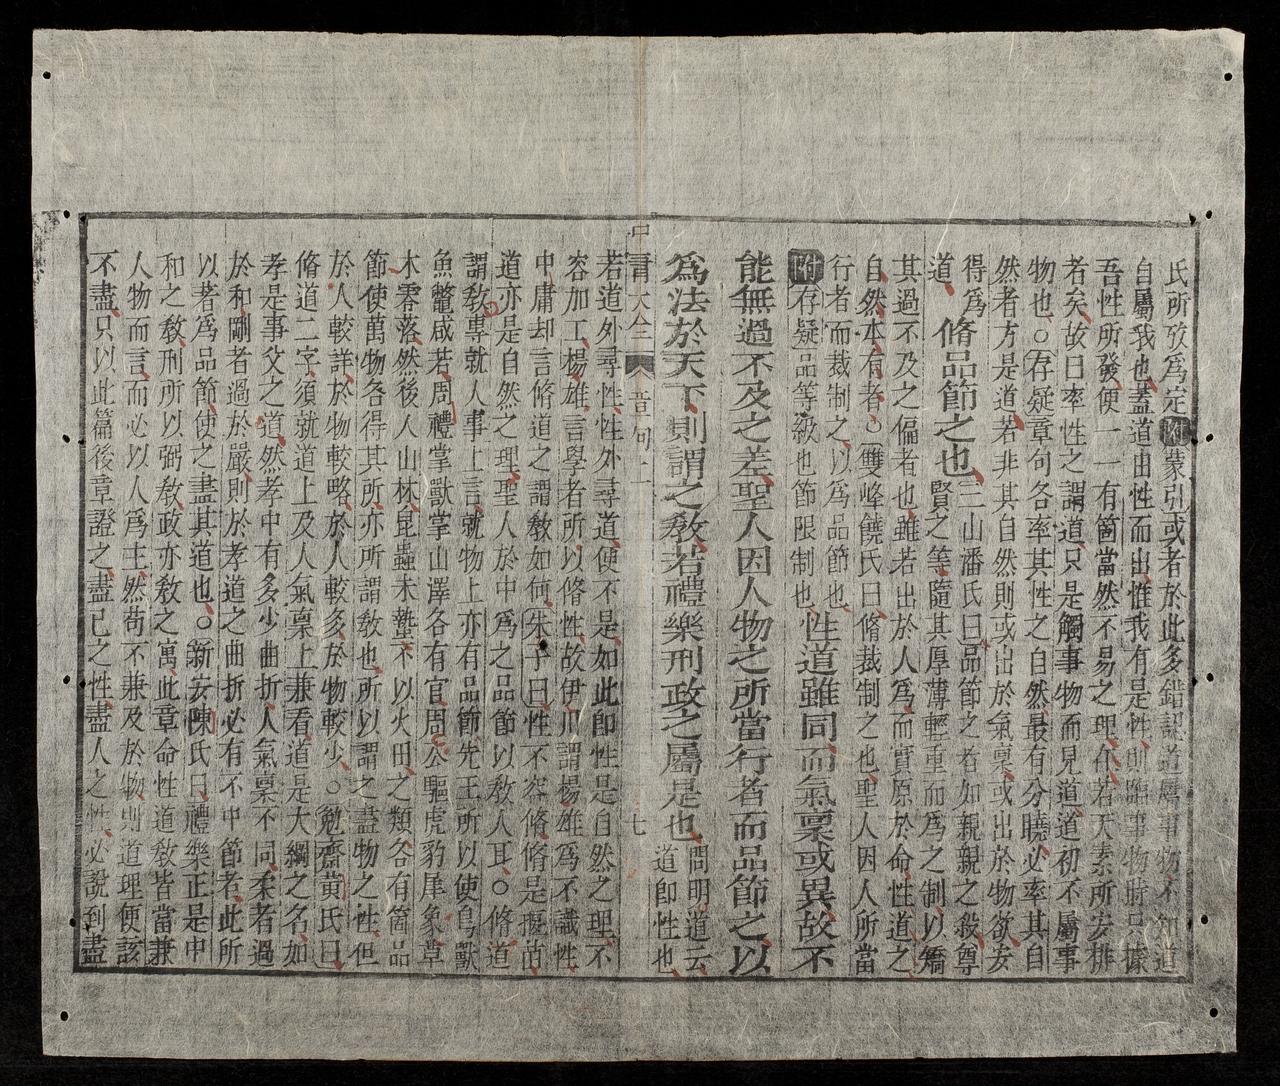 氏所攷爲定附蒙引或者於此多錯認道屬事物不知道
自屬我也蓋道由性而出惟我有是性則臨事物時只據
吾性所發便一一有箇當然不易之理在若天素所安排
者矣故曰率性之謂道只是觸事物而見道道初不屬事
物也○存疑章句各率其性之自然最有分曉必率其自
然者方是道若非其自然則或出於氣稟或出於物欲安
得爲
道
脩品節之也
三山潘氏曰品節之者如親親之殺尊
賢之等隨其厚薄輕重而爲之制以矯
其過不及之偏者也雖若出於人爲而實原於命性道之
自然本有者○雙峰饒氏曰脩裁制之也聖人因人所當
行者而裁制之以爲品節也
附存疑品等級也節限制也
性道雖同而氣稟或異故不
能無過不及之差聖人因人物之所當行者而品節之以
爲法於天下則謂之敎若禮樂刑政之屬是也
問明道云
道即性也
中庸大全
章句一
七
若道外尋性性外尋道便不是如此即性是自然之理不
容加工揚雄言學者所以脩性故伊川謂楊雄爲不識性
中庸却言脩道之謂敎如何朱子曰性不容脩脩是揠苗
道亦是自然之理聖人於中爲之品節以敎人耳○脩道
謂敎專就人事上言就物上亦有品節先王所以使鳥獸
魚鼈咸若周禮掌獸掌山澤各有官周公驅虎豹犀象草
木零落然後入山林昆蟲未蟄不以火田之類各有箇品
節使萬物各得其所亦所謂敎也所以謂之盡物之性但
於人較詳於物較略於人較多於物較少○勉齋黃氏曰
脩道二字須就道上及人氣稟上兼看道是大綱之名如
孝是事父之道然孝中有多少曲折人氣稟不同柔者過
於和剛者過於嚴則於孝道之曲折必有不中節者此所
以著爲品節使之盡其道也○新安陳氏曰禮樂正是中
和之敎刑所以弼敎政亦敎之寓此章命性道敎皆當兼
人物而言而必以人爲主然苟不兼及於物則道理便該
不盡只以此篇後章證之盡己之性盡人之性必說到盡